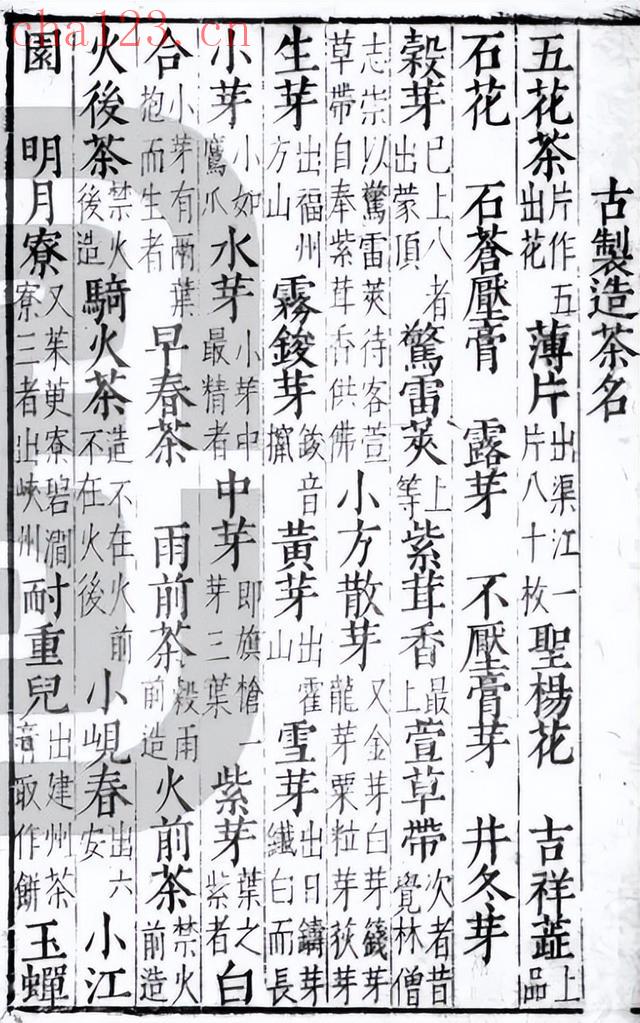 cha123.cn
古製造茶名
五花茶片作五出花薄片出渠江一片八十枚聖楊花 吉祥蕋上品
石花 石蒼壓膏 露芽 不壓膏芽 井冬芽
穀芽巳上八者出蒙頂驚雷莢上等紫茸香最上萱草帶次者昔覺林僧
志崇以驚雷莢待客萱草帶自奉紫茸香供佛小方散芽又金芽白芽芽龍芽粟粒芽荻芽
生芽出福州方山霧鋑芽鋑音攛黃芽出霍山雪芽出日鑄芽纖白而長
小芽小如鷹爪水芽小芽中最精者中芽即旗槍一芽三葉紫芽葉之紫者白
合小芽有兩葉抱而生者早春茶 雨前茶穀雨前造火前茶禁火前造
火後茶禁火後造騎火茶造不在火前不在火後小峴春出六安小江
園 明月寮又茱萸寮碧澗寮三者出峽州耐重兒出建州茶取作餅玉蟬